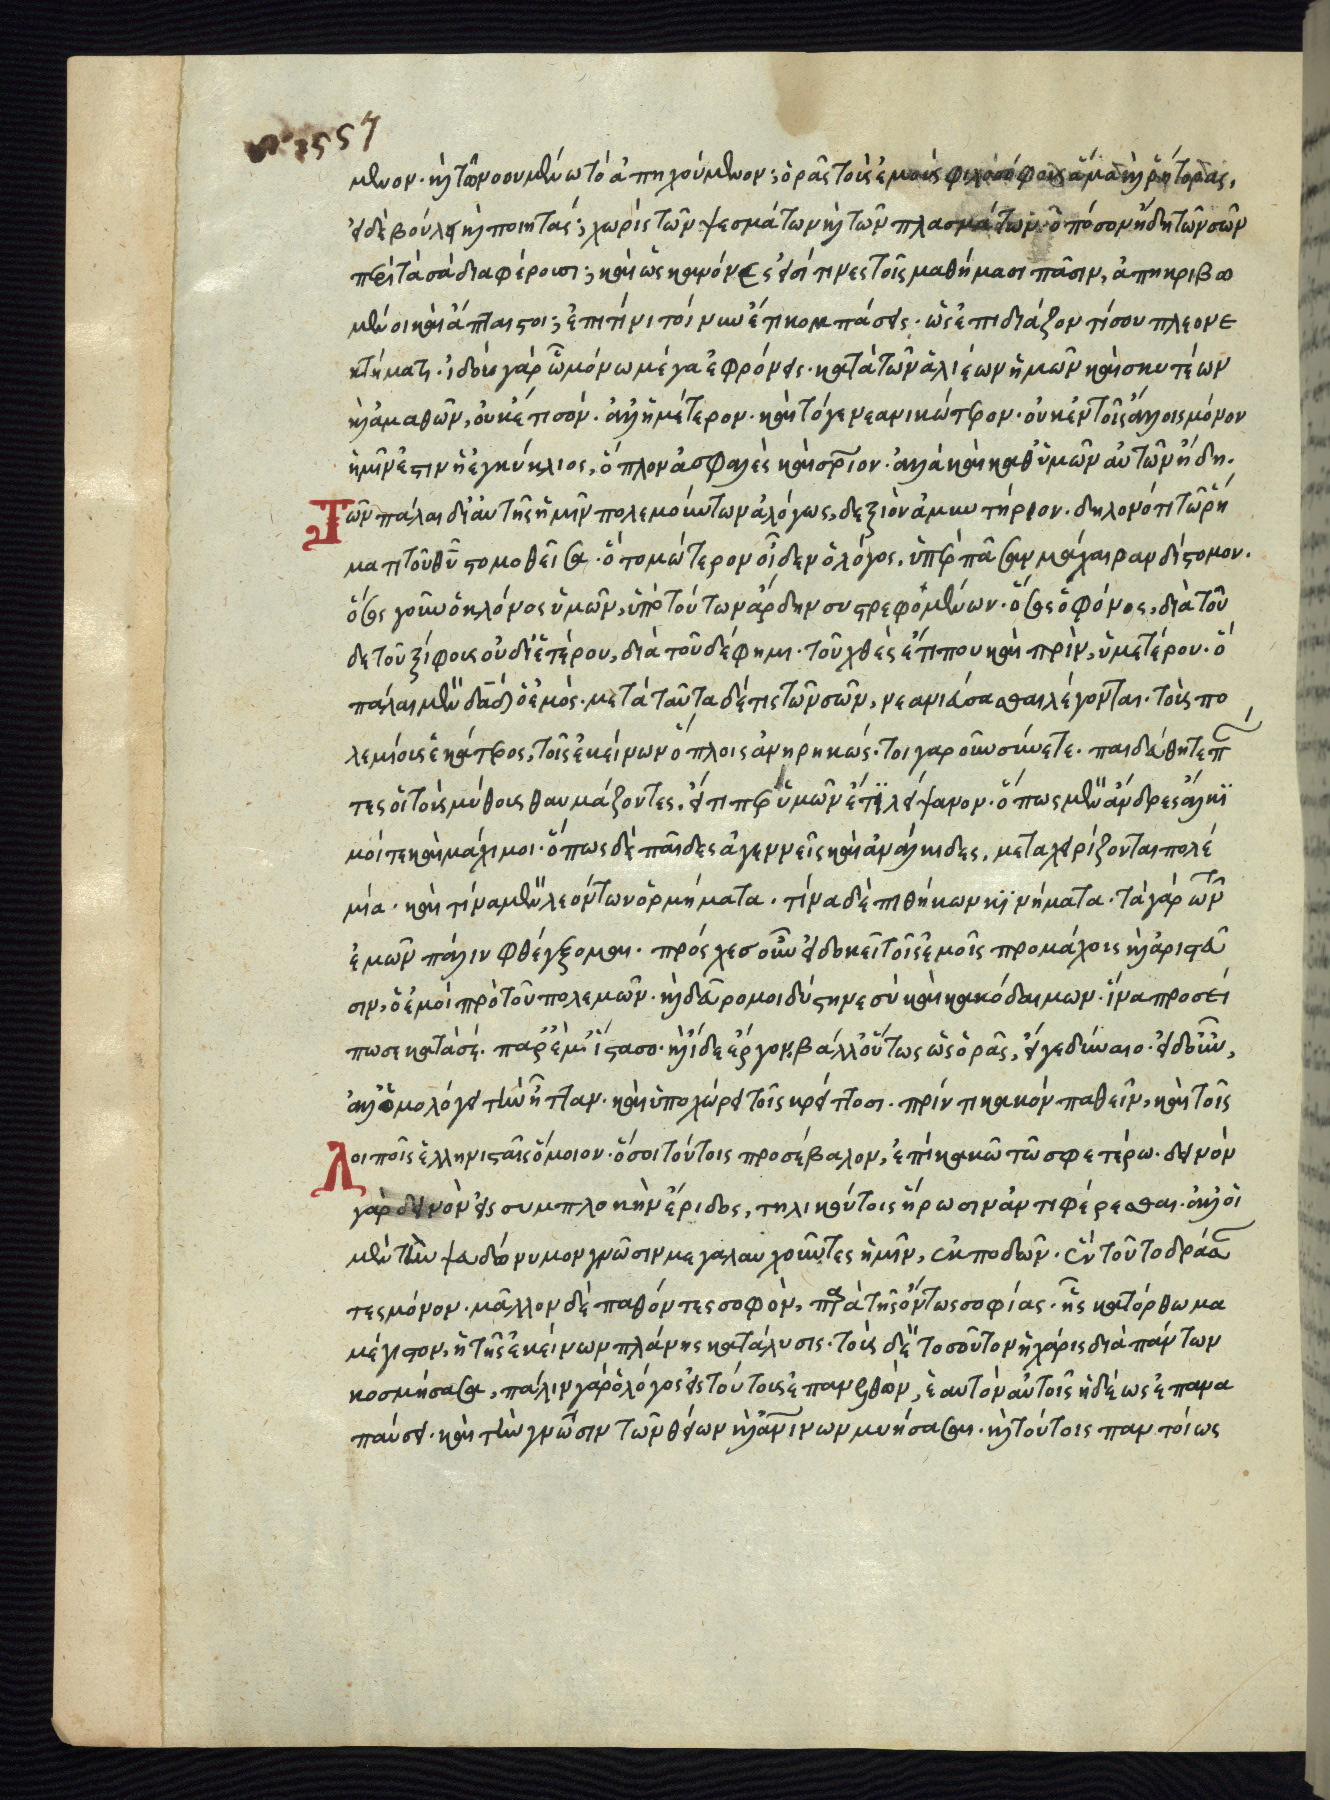 μενον· καὶ τῶ νοουμένω τὸ ἀπηχούμενον; ὁρᾶς τοὺς ἐμοὺς φιλοσόφους ἅμα καὶ ῥήτορας,
εἰ δὲ βούλει καὶ ποιητάς; χωρὶς τῶν ψεσμάτων καὶ τῶν πλασμάτων· ὁπόσον ἤδη τῶν σῶν
περὶ τὰ σὰ διαφέρουσι; καὶ ὡς εἰσί τινες τοῖς μαθήμασι πᾶσιν, ἀπηκριβω
μένοι καὶ ἄπταιστοι; ἐπὶ τίνι τοίνυν ἔτι κομπάσεις· ὡς ἐπιδιάζοντί σου πλεονε
κτήματι· ἰδοὺ γὰρ ὧ μόνω μέγα ἐφρόνεις· κατὰ τῶν ἁλιέων ἡμῶν καὶ σκυτέων
καὶ ἀμαθῶν, οὐκέτι σόν· ἀλλ' ἡμέτερον· καὶ τό γε νεανικώτερον· οὐκ ἐν τοῖς ἄλλοις μόνον
ἡμῖν ἐστιν ἡ ἐγκύκλιος, ὅπλον ἀσφαλὲς καὶ σωτήριον· ἀλλὰ καὶ καθ' ὑμῶν αὐτῶν ἤδη.
Τῶν πάλαι δι' αὐτῆς ἡμῖν πολεμούντων ἀλόγως, δεξιὸν ἀμυντήριον· δηλονότι τῶ ῥή
ματι τοῦ θεοῦ στομωθεῖσα· ὃ τομώτερον οἶδεν ὁ λόγος, ὑπὲρ πᾶσαν μάχαιραν δίστομον.
ὅσος γοῦν ὁ κλόνος ὑμῶν, ὑπὸ τούτων ἄρδην συστρεφομένων· ὅσος ὁ φόνος, διὰ τοῦ
δε τοῦ ξίφους οὐ δι' ἑτέρου, διὰ τοῦδέ φημι· τοῦ χθὲς ἔτι που καὶ πρὶν, ὑμετέρου· ὃ
πάλαι μὲν δαδ ὁ ἐμός· μετὰ ταῦτα δέ τις τῶν σῶν, νεανιεύσασθαι λέγονται· τοὺς πο
λεμίους ἑκάτερος, τοῖς ἐκείνων ὅπλοις ἀνηρηκώς· τοιγαροῦν σύνετε· παιδεύθητε πάν
τες οἱ τοὺς μύθους θαυμάζοντες, εἴ τί περ ὑμῶν ἔτι λείψανον· ὅπως μὲν ἄνδρες ἄλκι
μοί τε καὶ μάχιμοι· ὅπως δὲ παῖδες ἀγεννεῖς καὶ ἀνάλκιδες, μεταχειρίζονται πολέ
μια· καὶ τίνα μὲν λεόντων ὁρμήματα· τίνα δὲ πιθήκων κινήματα· τὰ γὰρ τῶν
ἐμῶν πάλιν φθέγξομαι· πρόσχες οὖν εἰ δοκεῖ τοῖς ἐμοῖς προμάχοις καὶ ἀριστεῦ
σιν, ὁ ἐμοὶ πρὸ τοῦ πολεμῶν· καὶ δεῦρό μοι δύστηνε σὺ καὶ κακόδαιμων· ἵνα προσεί
πω σε κατὰ σέ· παρ' ἐμὲ ἵστασο· καὶ ἴδε ἔργον, βάλλ' οὕτως ὡς ὁρᾶς, εἴγε δύναιο· εἰ δ' οὖν,
ἀλλ' ὁμολόγει τὴν ἧτταν· καὶ ὑποχώρει τοῖς κρείττοσι· πρίν τι κακὸν παθεῖν, καὶ τοῖς
Λοιποῖς ἑλληνισταῖς ὅμοιον· ὅσοι τούτοις προσέβαλον, ἐπὶ κακῶ τῶ σφετέρω· δεινὸν
γὰρ δεινὸν εἰς συμπλοκὴν ἔριδος, τηλικούτοις ἥρωσιν ἀντιφέρεσθαι· ἀλλ' οἱ
μὲν τὴν ψευδώνυμον γνῶσιν μεγαλαυχοῦντες ἡμῖν, ἐκποδὼν· ἓν τοῦτο δράσαν
τες μόνον· μᾶλλον δὲ παθόντες σοφὸν, παρὰ τῆς ὄντως σοφίας· ἧς κατόρθωμα
μέγιστον, ἡ τῆς ἐκείνων πλάνης κατάλυσις· τοὺς δὲ τοσοῦτον ἡ χάρις διὰ πάντων
κοσμήσασα, πάλιν γὰρ ὁ λόγος εἰς τούτους ἐπανελθὼν, ἑαυτὸν αὐτοῖς ἡδέως ἐπανα
παύσει· καὶ τὴν γνῶσιν τῶν θείων καὶ ἀνθρωπίνων μυήσασα· καὶ τούτοις παντοίως